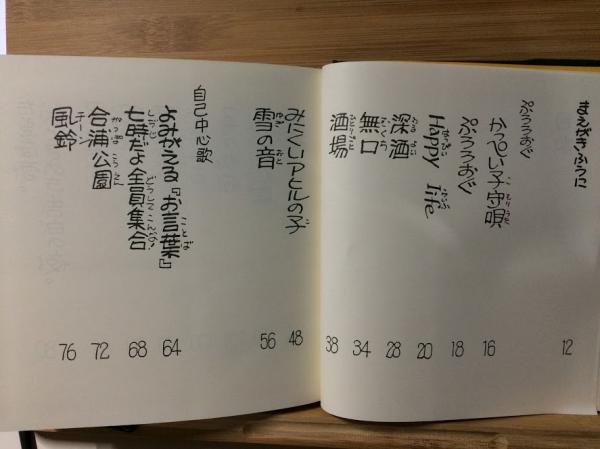 まえがきふうに 12
ぷろろおぐ
かっぺい子守唄 16
ぷろろおぐ 18
Happy life 20
深酒 28
無口 34
酒場 38
みにくいアヒルの子 48
雪の音 56
自己中心歌
よみがえる『お言葉』 64
七時だよ全員集合 68
合浦公園 72
風鈴 76